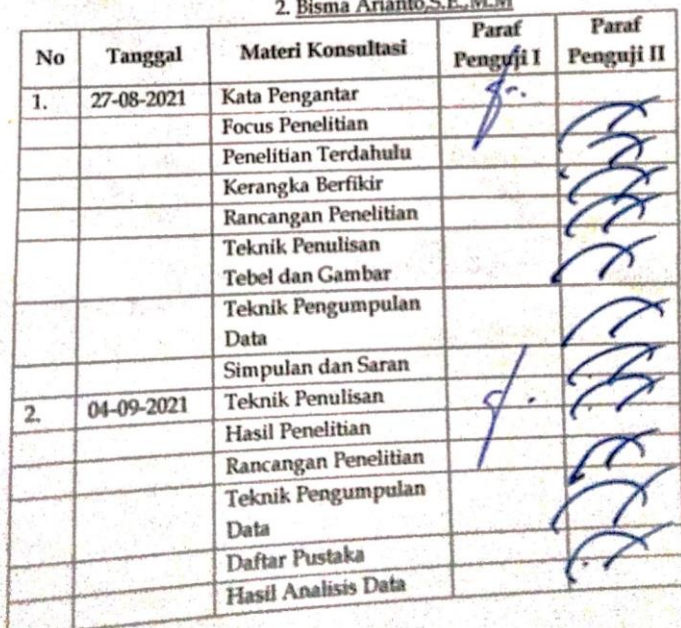 2. Bisma Arianto,S.E.,M.M
No Tanggal Materi Konsultasi Paraf Penguji I Paraf Penguji II
1. 27-08-2021 Kata Pengantar
Focus Penelitian
Penelitian Terdahulu
Kerangka Berfikir
Rancangan Penelitian
Teknik Penulisan
Tebel dan Gambar
Teknik Pengumpulan
Data
Simpulan dan Saran
2. 04-09-2021 Teknik Penulisan
Hasil Penelitian
Rancangan Penelitian
Teknik Pengumpulan
Data
Daftar Pustaka
Hasil Analisis Data